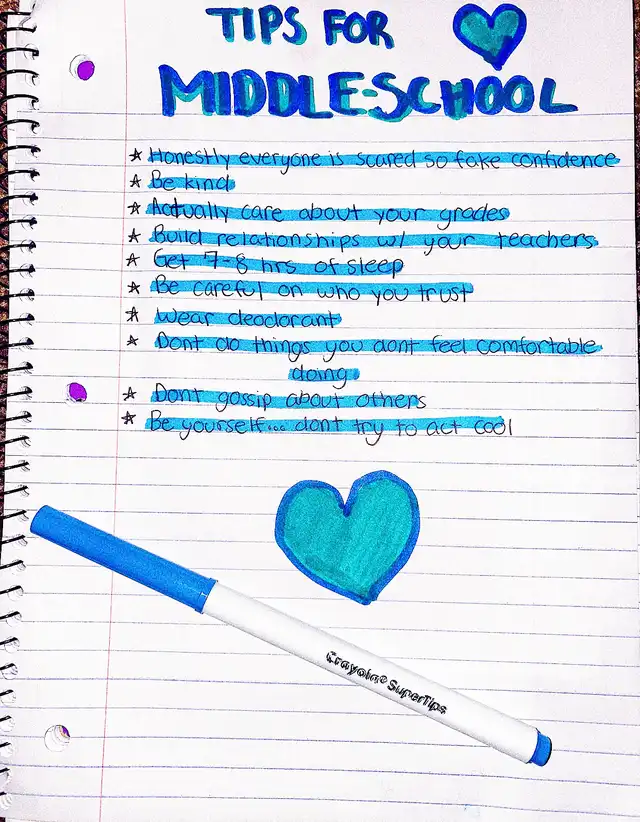 TIPS FOR
MIDDLE-SCHOOL
☆ Honestly everyone is scared so fake confidence
☆ Be kind
☆ Actually care about your grades
☆ Build relationships w/ your teachers
☆ Get 7-8 hrs of sleep
☆ Be careful on who you trust
☆ Wear deodorant
☆ Dont do things you dont feel comfortable
doing
☆ Dont gossip about others
☆ Be yourself... dont try to act cool
Crayola® SuperTips